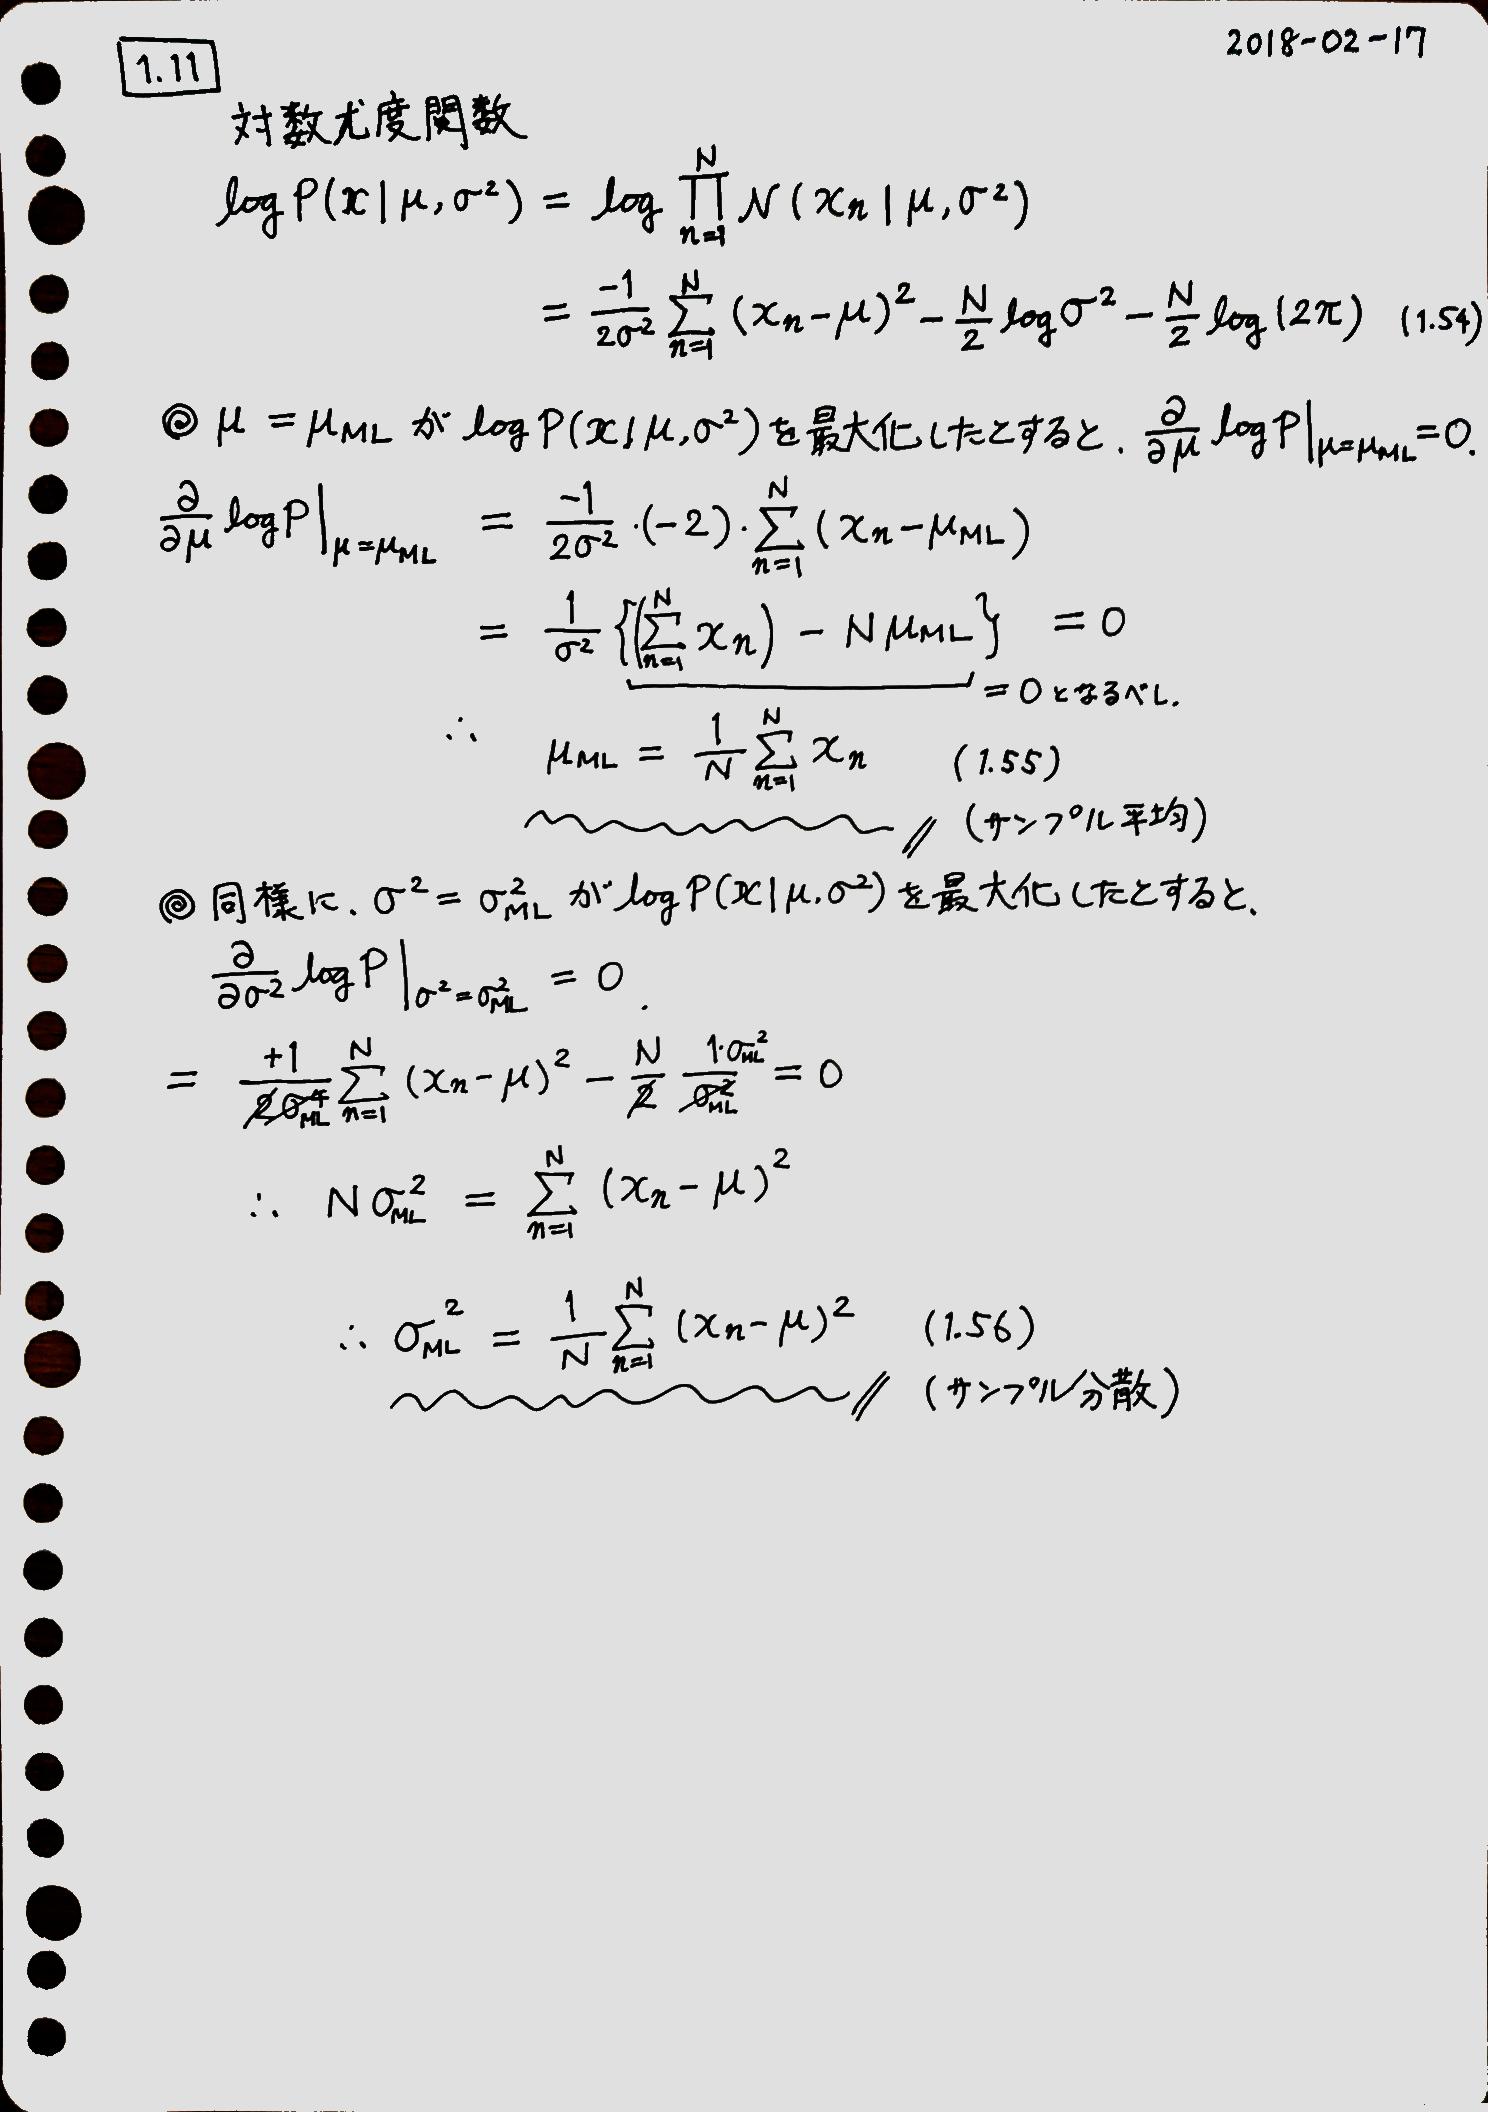 2018-02-17
1.11
対数尤度関数
log P(x|μ,σ²) = log ∏_{n=1}^{N} N(x_n|μ,σ²)
= -1/2σ² ∑_{n=1}^{N} (x_n-μ)² - N/2 log σ² - N/2 log(2π) (1.54)
◎ μ = μ_ML が log P(x|μ,σ²) を最大化したとすると、 ∂/∂μ log P|_{μ=μ_ML} = 0.
∂/∂μ log P|_{μ=μ_ML} = -1/2σ² ·(-2)· ∑_{n=1}^{N} (x_n-μ_ML)
= 1/σ² {(∑_{n=1}^{N} x_n) - Nμ_ML} = 0
= 0 となるべし.
∴ μ_ML = 1/N ∑_{n=1}^{N} x_n (1.55)
(サンプル平均)
◎ 同様に、σ² = σ²_ML が log P(x|μ,σ²) を最大化したとすると、
∂/∂σ² log P|_{σ²=σ²_ML} = 0.
= +1/2σ⁴_ML ∑_{n=1}^{N} (x_n-μ)² - N/2 1·σ_ML²/σ²_ML = 0
∴ Nσ²_ML = ∑_{n=1}^{N} (x_n-μ)²
∴ σ_ML² = 1/N ∑_{n=1}^{N} (x_n-μ)² (1.56)
(サンプル分散)